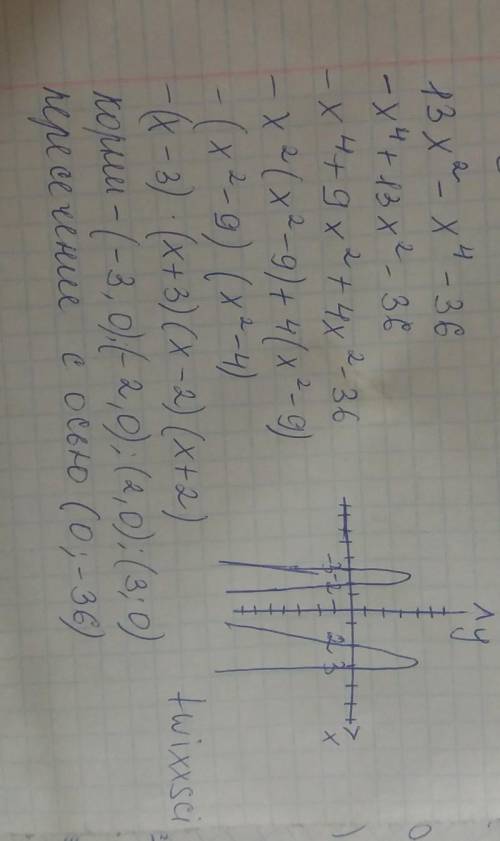 13x² - x⁴ - 36
-x⁴ + 13x² - 36
-x⁴ + 9x² + 4x² - 36
-x²(x² - 9) + 4(x² - 9)
-(x² - 9)(x² - 4)
-(x - 3)·(x + 3)(x - 2)(x + 2)
корни - (-3, 0); (-2, 0); (2, 0); (3; 0)
пересечение с осью (0; -36)
y
-3 -2 2 3
x
twixxsci